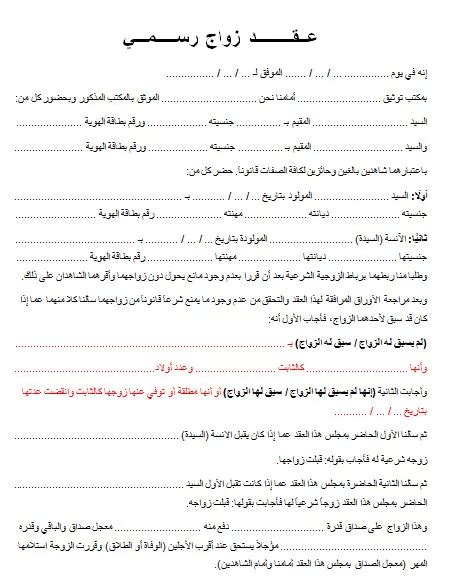 عـقـــــد زواج رســـــمـــي
إنه في يوم ................ ... / ... / ....... الموفق لـ ... / ... / ................
بمكتب توثيق ............................ أمامنا نحن ............................ الموثق بالمكتب المذكور وبحضور كل من:
السيد ............................ المقيم بـ .................... جنسيته .................... ورقم بطاقة الهوية ....................
والسيد ............................ المقيم بـ .................... جنسيته .................... ورقم بطاقة الهوية ....................
باعتبارهما شاهدين بالغين وحائزين لكافة الصفات قانوناً. حضر كل من:
أولًا: السيد ............................ المولود بتاريخ ... / ... / ............ بـ ............................
جنسيته .................... ديانته .................... مهنته .................... رقم بطاقة الهوية ....................
ثانيًا: الآنسة (السيدة) ............................ المولودة بتاريخ ... / ... / ............ بـ ............................
جنسيتها .................... ديانتها .................... مهنتها .................... رقم بطاقة الهوية ....................
وطلبا منا ربطهما برباط الزوجية الشرعية بعد أن قررا بعدم وجود مانع يحول دون زواجهما وأقرهما الشاهدان على ذلك.
وبعد مراجعة الأوراق المرافقة لهذا العقد والتحقق من عدم وجود ما يمنع شرعاً قانوناً من زواجهما سالنا كلا منهما عما إذا
كان قد سبق لأحدهما الزواج، فأجاب الأول أنه:
(لم يسبق له الزواج / سبق له الزواج) بـ ............................
وأنها ............................ كالثابت ............................ وعدد أولاد ............................
وأجابت الثانية (إنها لم يسبق لها الزواج / سبق لها الزواج) أو أنها مطلقة أو توفي عنها زوجها كالثابت وانقضت عدتها
بتاريخ ... / ... / ...........
ثم سالنا الأول الحاضر بمجلس هذا العقد عما إذا كان يقبل الانسة (السيدة) ............................
زوجه شرعية له فأجاب بقوله: قبلت زواجها.
ثم سالنا الثانية الحاضرة بمجلس هذا العقد عما إذا كانت تقبل الأول السيد ............................
الحاضر بمجلس هذا العقد زوجاً شرعياً لها فأجابت بقولها: قبلت زواجه.
وهذا الزواج على صداق قدرة .................... دفع منه ............................ معجل صداق والباقي وقدره
............................ مؤجلاً يستحق عند أقرب الأجلين (الوفاة أو الطلاق) وقررت الزوجة استلامها
المهر (معجل الصداق بمجلس هذا العقد أمامنا وأمام الشاهدين).